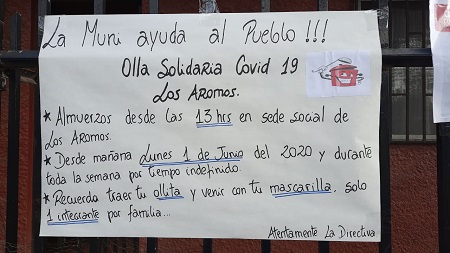 La Muni ayuda al Pueblo !!!
Olla Solidaria Covid 19
Los Aromos.
* Almuerzos desde las 13 hrs en sede social de
Los Aromos.
* Desde mañana Lunes 1 de Junio del 2020 y durante
toda la semana por tiempo indefinido.
* Recuerda traer tu ollita y venir con tu mascarilla, solo
1 integrante por familia...
Atentamente La Directiva